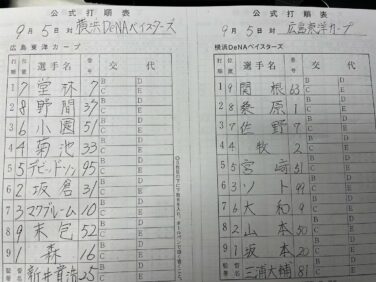 公式打順表
9月5日対横浜DeNAベイスターズ
広島東洋カープ
打順 位置 選手名 番号 交代
1 7 堂林 7 B C D E
2 8 野間 37 B C D E
3 6 小園 51 B C D E
4 4 菊池 33 B C D E
5 5 デビッドソン 95 B C D E
6 2 坂倉 31 B C D E
7 3 マクブルーム 10 B C D E
8 9 末包 52 B C D E
9 1 森 16 B C D E
監督 署名 新井貴浩 25
公式打順表
9月5日対広島東洋カープ
横浜DeNAベイスターズ
打順 位置 選手名 番号 交代
1 9 関根 63 B C D E
2 8 桑原 1 B C D E
3 7 佐野 7 B C D E
4 4 牧 2 B C D E
5 5 宮﨑 51 B C D E
6 3 ソト 99 B C D E
7 6 大和 9 B C D E
8 2 山本 50 B C D E
9 1 坂本 20 B C D E
監督 署名 三浦大輔 81